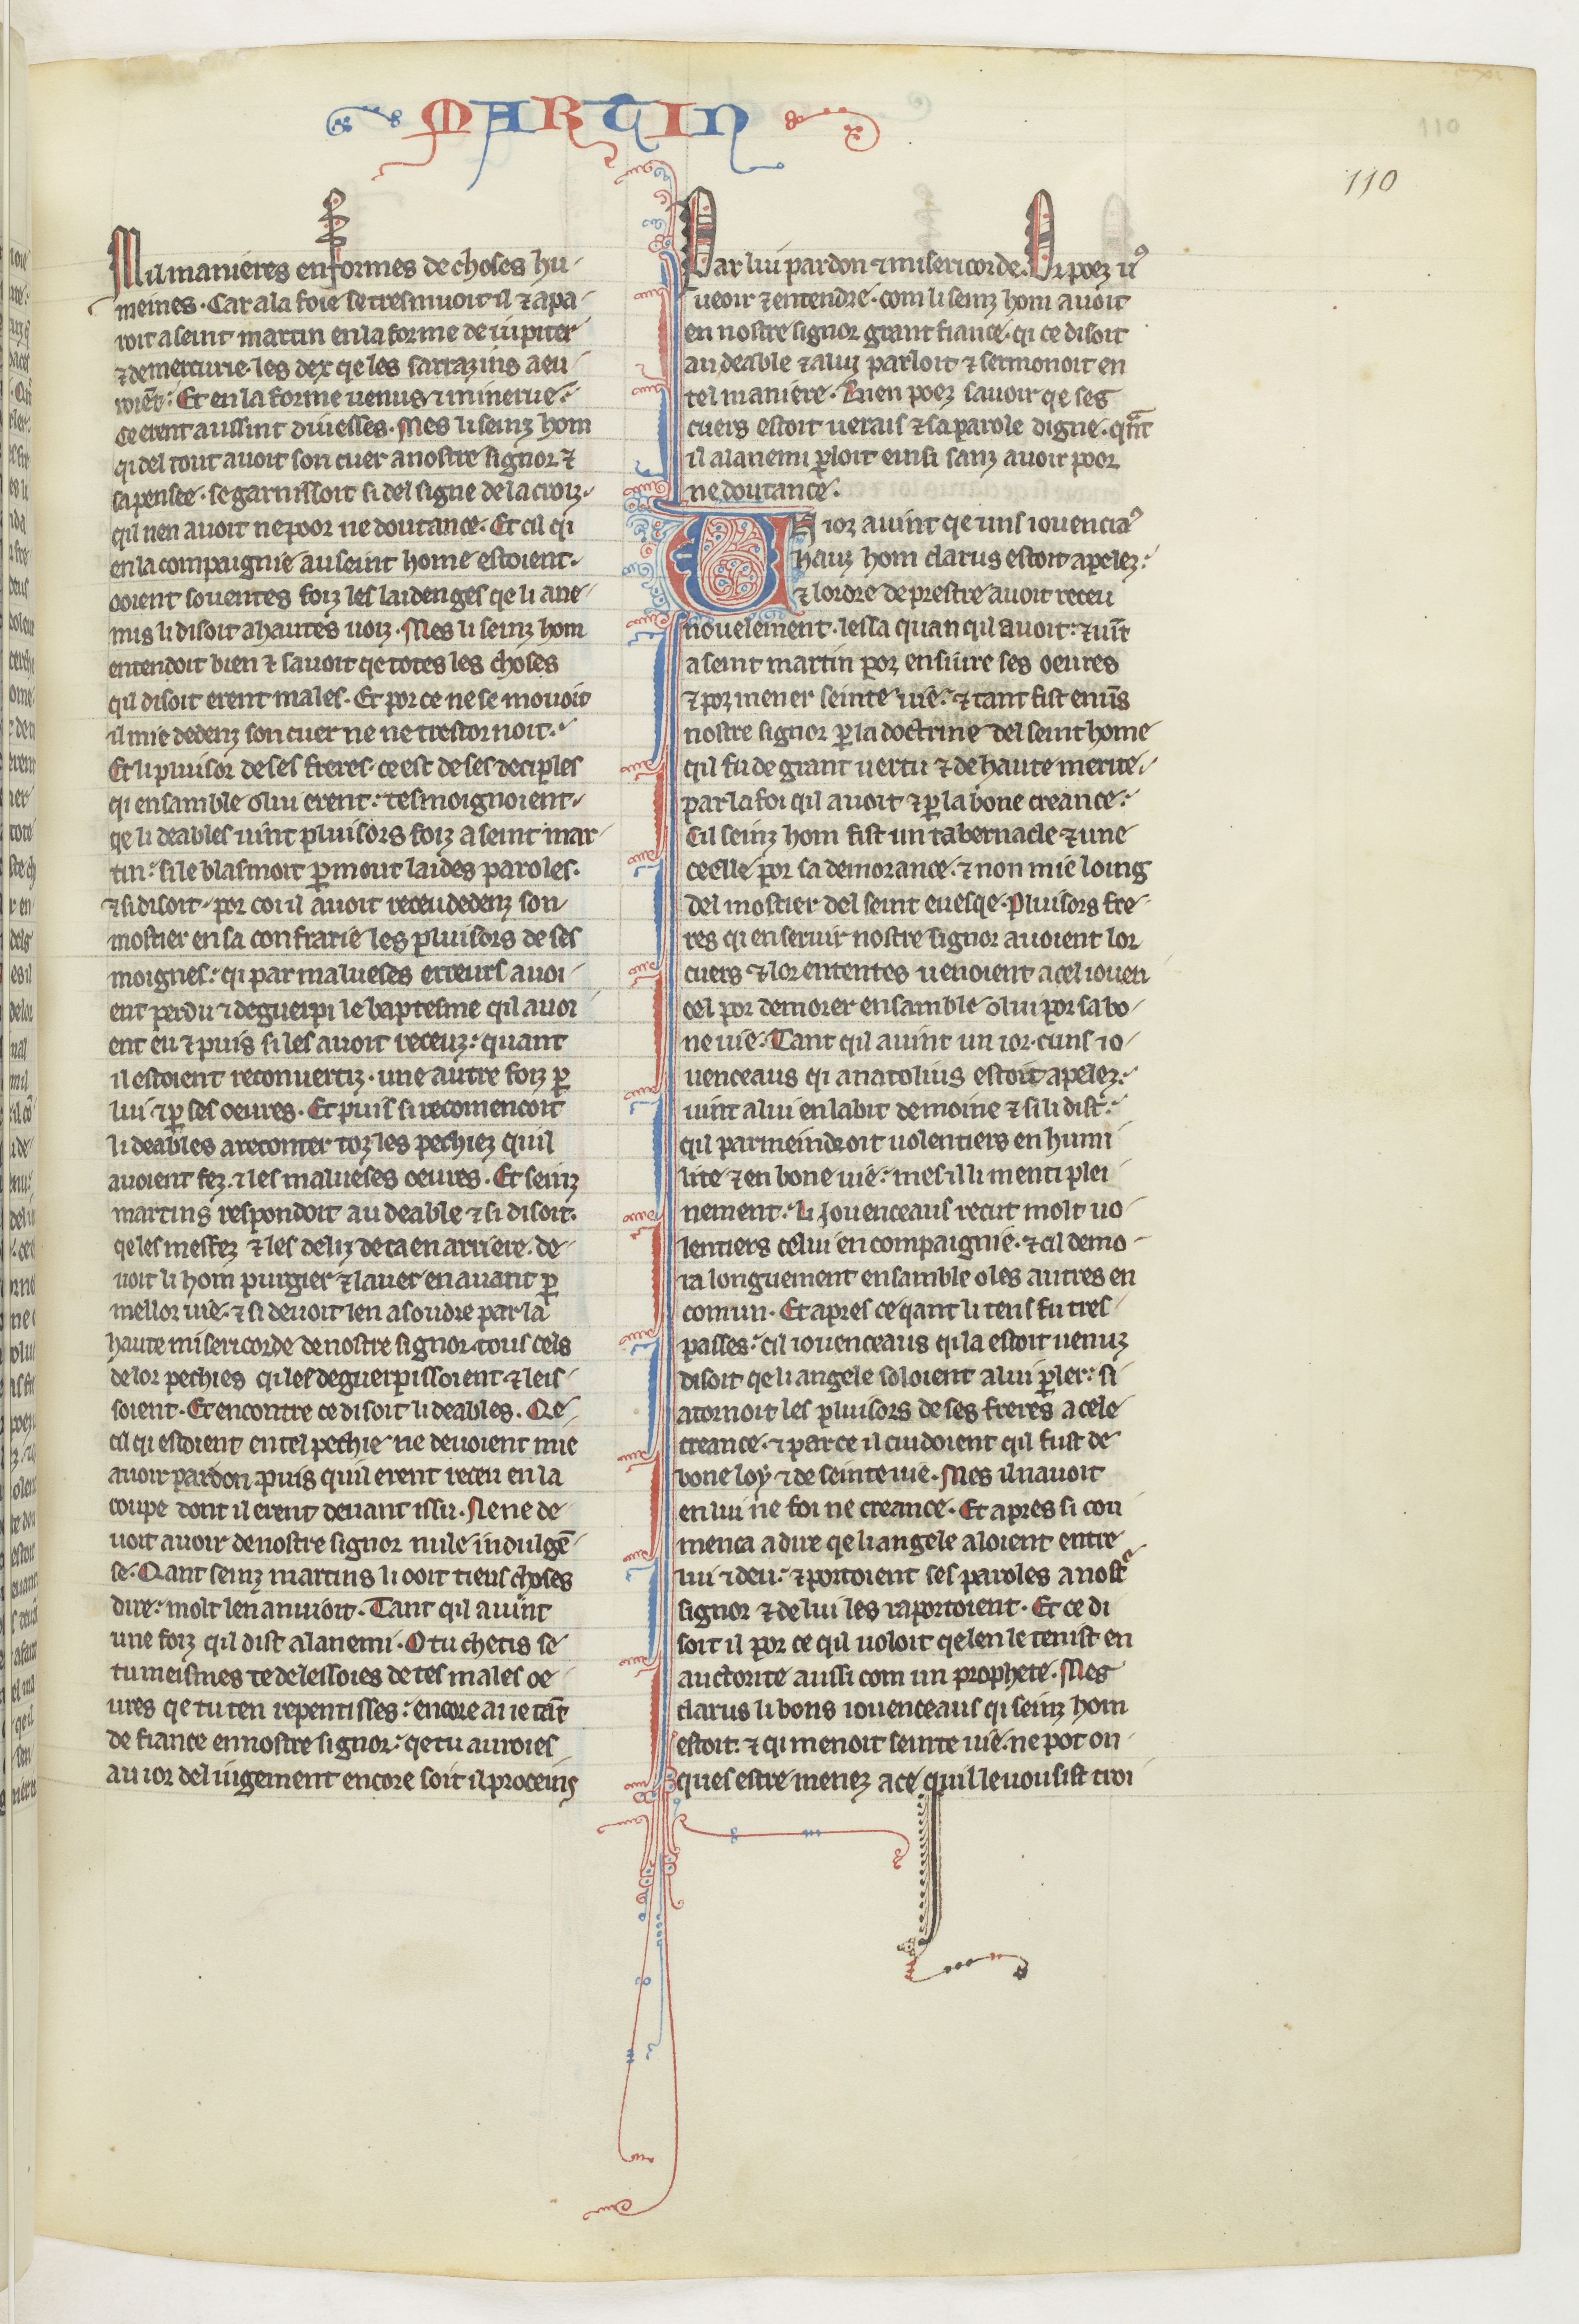 MARTIN
110
110
Mil manieres en formes de choses hu-
meines. Car a la foie se tresmuoit il ⁊ apa-
roit a seint martin en la forme de iupiter
⁊ de mercurie. les dex qe les sarrazins aeu-
roiẽt. Et en la forme uenus ⁊ minerue.
Ce erent aussint diuesses. Mes li seinz hom
qi del tout auoit son cuer a nostre signor ⁊
sa pensee. se garnissoit si del signe de la croiz.
qil nen auoit ne poor ne doutance. Et cil qi
en la compaignie au seint home estoient.
ooient souentes foiz les laidenges qe li ane-
mis li disoit a hautes uoiz. Mes li seinz hom
entendoit bien ⁊ sauoit qe totes les choses
qil disoit erent males. Et por ce ne se mouoit
il mie dedenz son cuer ne ne trestornoit.
Et li pluisor de ses freres. ce est de ses deciples
qi ensamble o lui erent. tesmoignoient.
qe li deables uint pluisors foiz a seint mar-
tin. si le blasmoit ꝑ mout laides paroles.
⁊ si disoit. por coi il auoit receu dedenz son
mostier en sa confrarie les pluisors de ses
moignes. qi par malueses erreurs auoi-
ent perdu ⁊ deguerpi le baptesme qil auoi-
ent eu ⁊ puis si les auoit receuz. quant
il estoient reconuertiz. une autre foiz ꝑ
lui ⁊ ꝑ ses oeures. Et puis si recomencoit
li deables a reconter toz les pechiez quil
auoient fez. ⁊ les malueses oeures. Et seinz
martins respondoit au deable ⁊ si disoit.
qe les mesfez ⁊ les deliz de ca en arriere. de-
uoit li hom purgier ⁊ lauer en auant ꝑ
mellor uie. ⁊ si deuoit len asoudre par la
haute misericorde de nostre signor. tous cels
de lor pechies qi les deguerpissoient ⁊ leis-
soient. Et encontre ce disoit li deables. Qe
cil qi estoient en tel pechie ne deuoient mie
auoir pardon puis quil erent receu en la
coupe dont il erent deuant issu. Ne ne de-
uoit auoir de nostre signor nule indulgẽ-
se. Qant seinz martins li ooit tieus choses
dire. molt len anuioit. Tant qil auint
une foiz qil dist a lanemi. O tu chetis se
tu meismes te delessoies de tes males oe-
ures qe tu ten repentisses. encore ai ie tãt
de fiance en nostre signor. qe tu auroies
au ior del iugement encore soit il proceins
Par lui pardon ⁊ misericorde. Vi poez uꝰ
ueoir ⁊ entendre. com li seinz hom auoit
en nostre signor grant fiance. qi ce disoit
au deable ⁊ a lui parloit ⁊ sermonoit en
tel maniere. Bien poez sauoir qe ses
cuers estoit uerais ⁊ sa parole digne. qñt
il a lanemi ꝑloit einsi sanz auoir poor
ne doutance.
UN ior auint qe uns iouenciaꝰ
hauz hom clarus estoit apelez.
⁊ lordre de prestre auoit receu
nouelement. lessa quan qil auoit. ⁊ uĩt
a seint martin por ensiure ses oeures
⁊ por mener seinte uie. ⁊ tant fist enũs
nostre signor ꝑ la doctrine del seint home
qil fu de grant uertu ⁊ de haute merite.
par la foi qil auoit ⁊ ꝑ la bone creance.
Cil seinz hom fist un tabernacle ⁊ une
ceelle por sa demorance. ⁊ non mie loing
del mostier del seint euesqe. Pluisors fre-
res qi en seruir nostre signor auoient lor
cuers ⁊ lor ententes uenoient a cel iouen-
cel por demorer ensamble o lui por sa bo-
ne uie. Tant qil auint un ior. cuns io-
uenceaus qi anatolius estoit apelez.
uint a lui en labit de moine ⁊ si li dist.
qil parmeindroit uolentiers en humi-
lite ⁊ en bone uie. mes il li menti plei-
nement. Li Jouenceaus recut molt uo-
lentiers celui en compaignie. ⁊ cil demo-
ra longuement ensamble o les autres en
comun. Et apres ce qant li tens fu tres-
passes. cil iouenceaus qi la estoit uenuz
disoit qe li angele soloient a lui ꝑler. si
atornoit les pluisors de ses freres a cele
creance. ⁊ par ce il cuidoient qil fust de
bone loy ⁊ de seinte uie. Mes il nauoit
en lui ne foi ne creance. Et apres si cou-
menca a dire qe li angele aloient entre
lui ⁊ deu. ⁊ portoient ses paroles a nostͤ
signor ⁊ de lui les raportoient. Et ce di-
soit il por ce qil uoloit qe len le tenist en
auctorite aussi com un prophete. Mes
clarus li bons iouenceaus qi seinz hom
estoit. ⁊ qi menoit seinte uie. ne pot on-
ques estre menez a ce quil le uousist croi